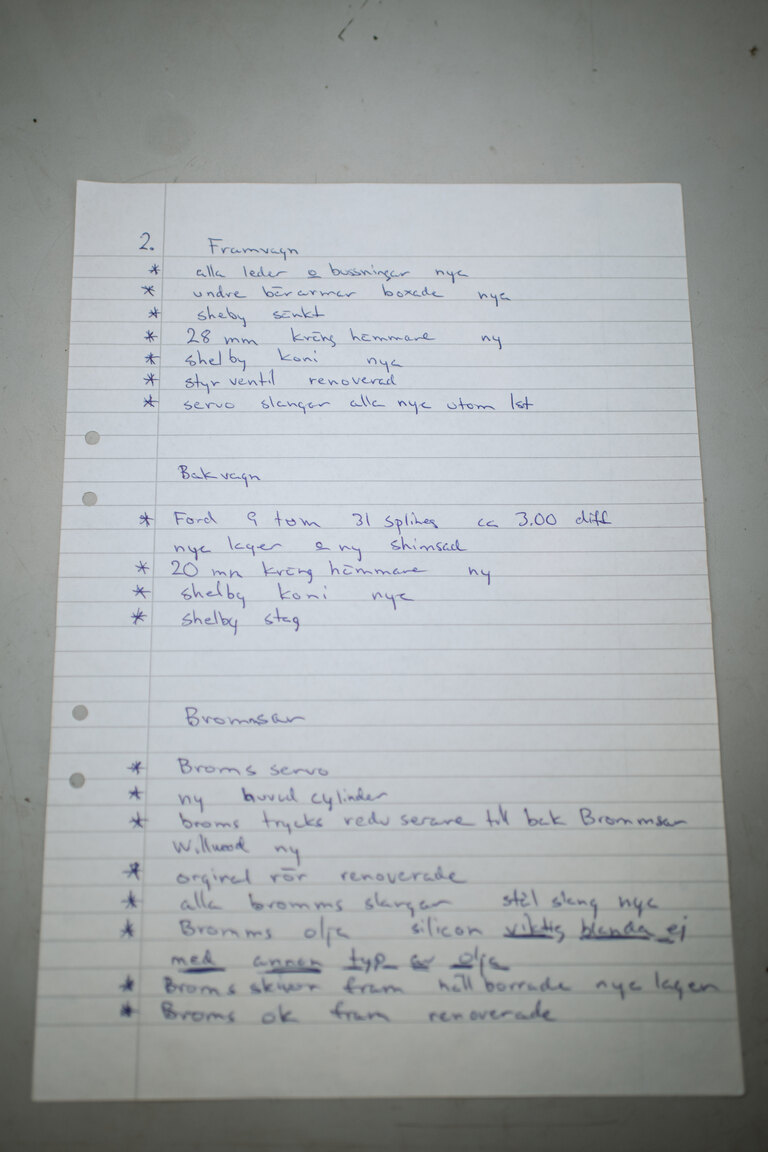 2. Framvagn
* alla leder o bussningar nya
* undre bärarmar boxade nya
* sheby sänkt
* 28 mm kräng hämmare ny
* shelby koni nya
* styr ventil renoverad
* servo slangar alla nya utom 1st
Bakvagn
* Ford 9 tum 31 splines ca 3.00 diff
nya lager o ny shimsad
* 20 mm kräng hämmare ny
* shelby koni nya
* shelby stag
Brommsar
* Broms servo
* ny huvud cylinder
* broms trycks redu serare till bak Brommsar
Willwood ny
* orginal rör renoverade
* alla bromms slangar stål slang nya
* Bromms olja silicon viktig blanda ej
med annan typ av olja
* Broms skivor fram hål borrade nya lagen
* Broms ok fram renoverade